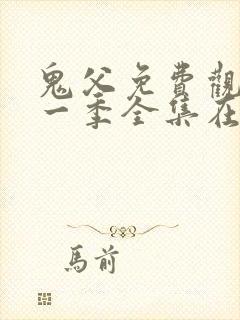 鬼父免費觀
一季全集在
馬前